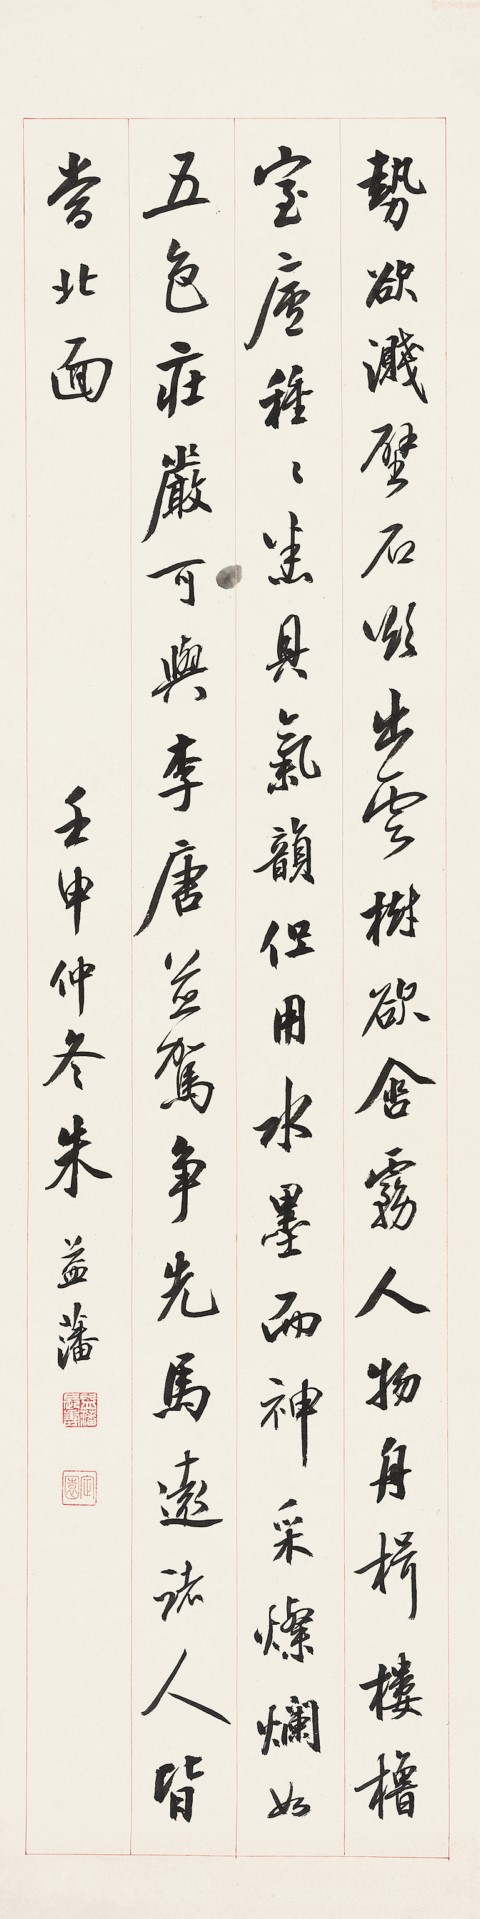 勢欲濺壁石欲出雲樹欲含霧人物舟楫樓櫓
室廬種〻悉具氣韻但用水墨而神采燦爛如
五色莊嚴可與李唐並駕爭先馬遠諸人皆
當北面
壬申仲冬朱益藩